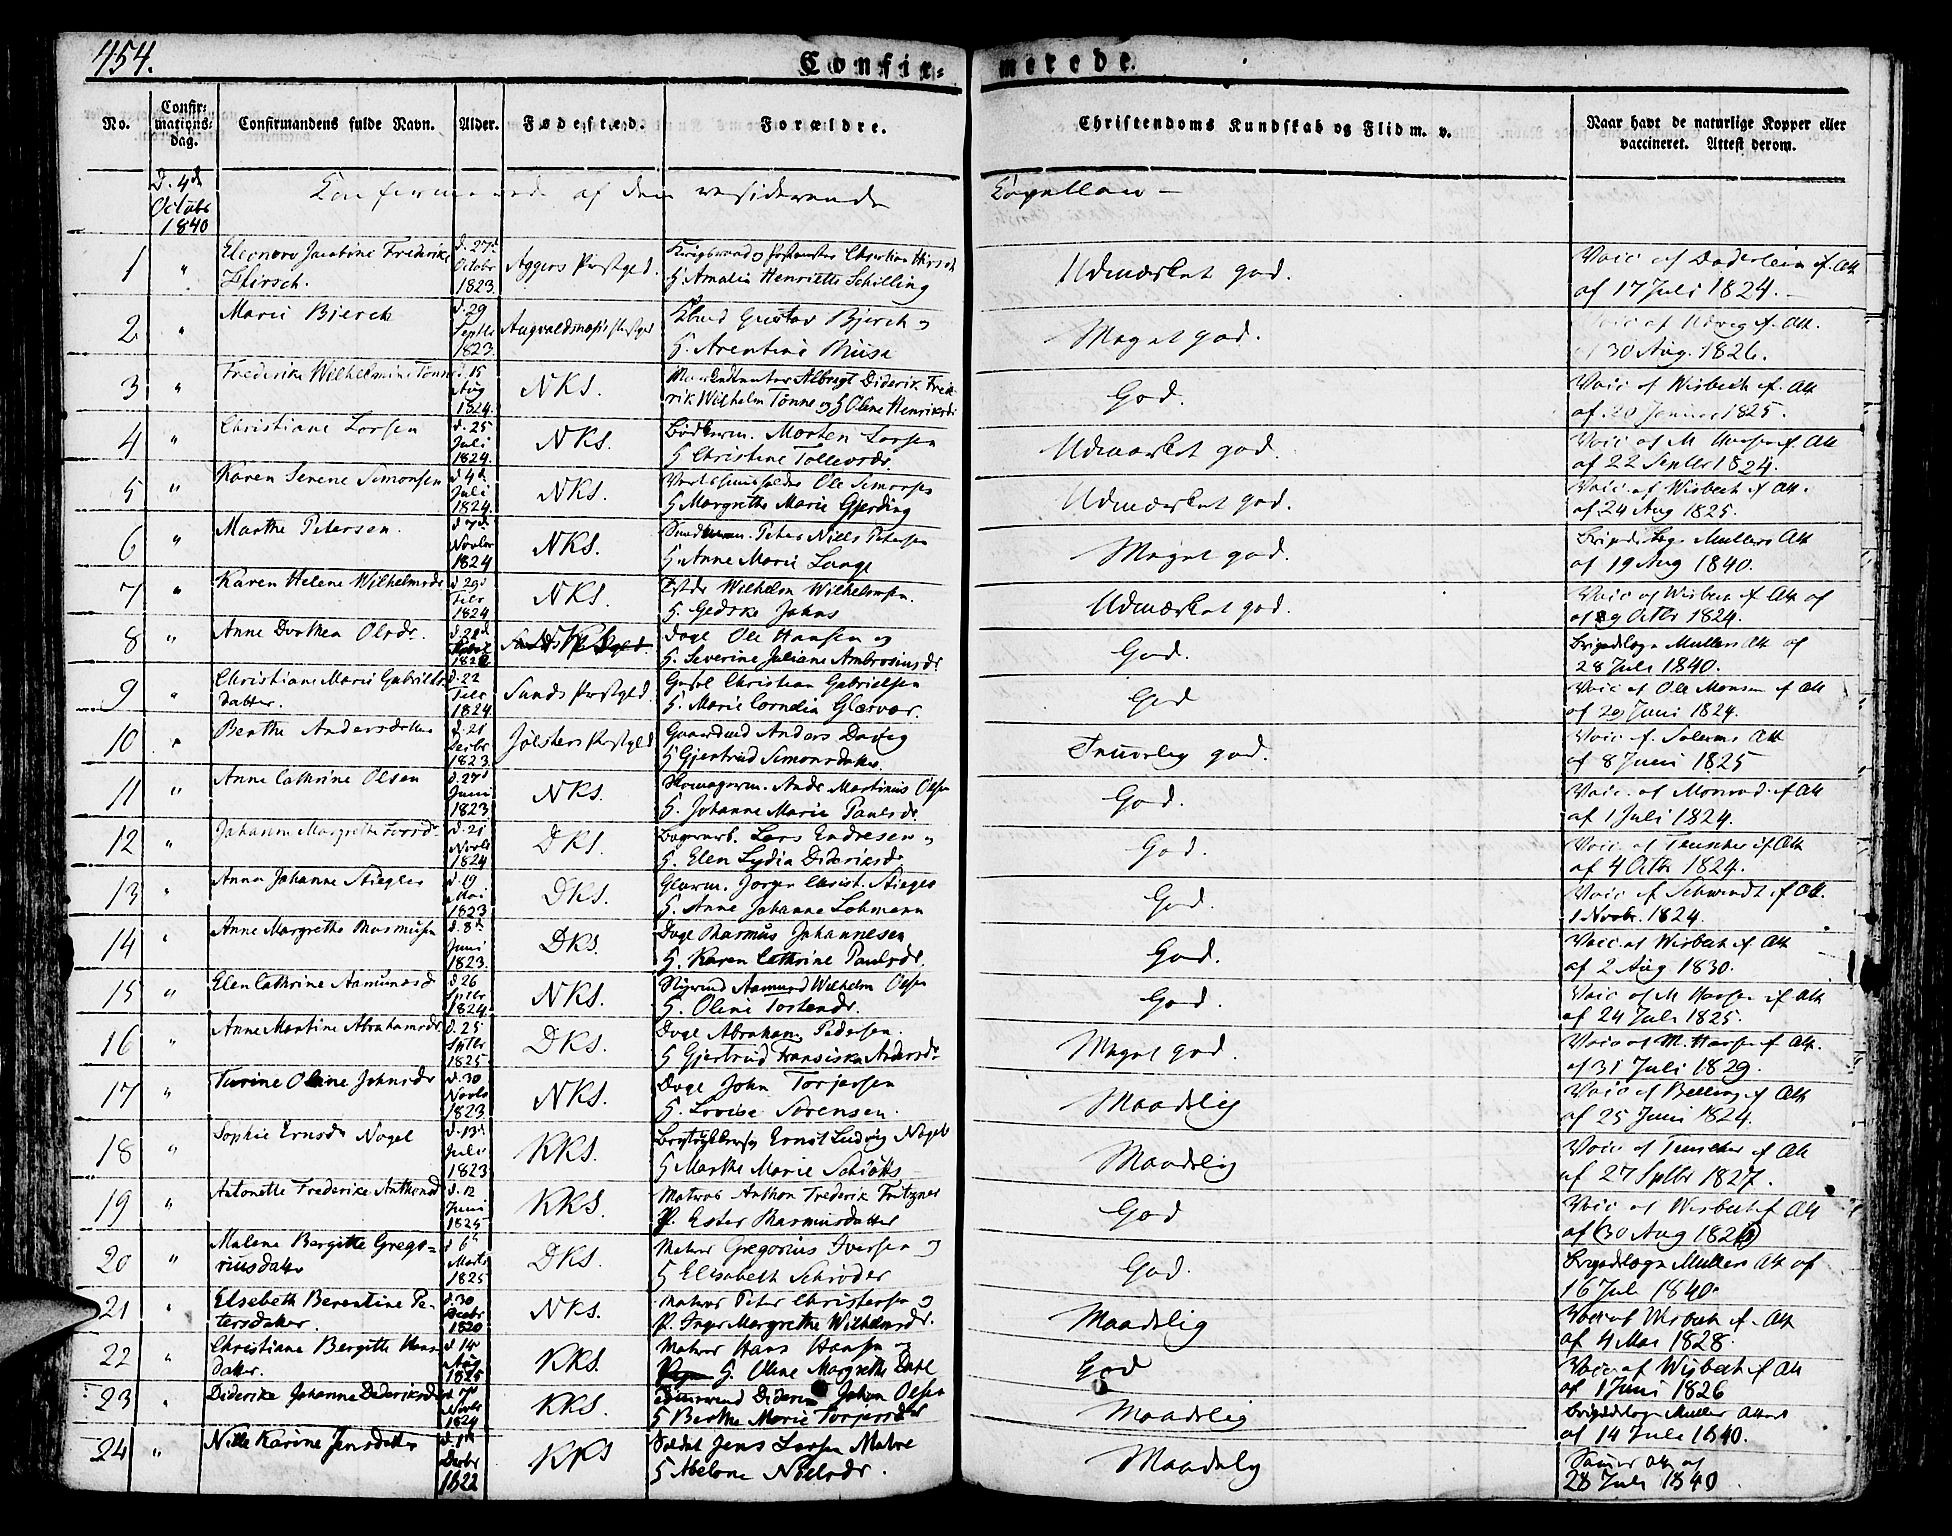 454.
Confir=
merede.
No.
Confir=
mations=
dag.
Confirmandens fulde Navn.
Alder.
Fødested.
Forældre.
Christendoms Kundskab og Flid m. v.
Naar havt de naturlige Kopper eller
vaccineret. Attest derom.
D. 4de
Octobr
1840
Confirmerede af den residerende Capellan –
1 " Eleonora Jacobine Frederike
Hirsch.
d. 27d
Octobr
1823.
Aggers Præstgd.
Christian Hirsch
H. Amalia Henriette Schilling
Udmærket god.
Vacc. af Døderlein if. Att
af 17 Juli 1824. –
2 " Marie Bjerck
d. 29
Septbr
1823.
Gustav Bjerck og
H. Arentine
Meget god.
af 30 Aug. 1826.
3 " Frederike Wilhelmine Tønne
d. 15
Aug
1824.
NKS.
Albregt Diderik Fred-
rik Wilhelm Tønne og H Oline Henriksdr
God.
Vacc. af Wisbech if. Att
af 20 Januar 1825.
4 " Christiane Larsen
d. 25
Juli
1824.
NKS.
Bødkerm. Morten Larsen
H Christine Tollevsdr.
Udmærket god.
Vacc af M Hansen if. Att
af 22 Septbr 1824.
5 " Karen Serene Simonsen
d 4d
Juli
1824.
NKS.
Ole Simonsen
H Margrethe Marie Gjerding
Udmærket god.
Vacc. af Wisbech if Att.
af 24 Aug 1825.
6 " Marthe Petersen.
d 7d
Novbr
1824
NKS.
Peter Niels Petersen
H. Anne Marie Lange
Meget god.
Brigadelæge Mullers Att
af 19 Aug 1840.
7 " Karen Helene Wilhelmsdr
d 29d
Febr
1824.
NKS.
Wilhelm Wilhelmsen.
H. Gedske Johns
Udmærket god.
Vacc af Wisbech if Att af
af 9 Octbr 1824.
8 " Anne Dorthea Olsdr.
NKS.
Dagl Ole Hansen og
H. Severine Juliane Ambrosiusdr
God.
Brigadelægn Mullers Att af
28 Juli 1840.
9 " Christiane Marie Gabriels-
datter.
d. 22
Febr
1824.
Sunds Præstgld
Christian Gabrielsen
H. Marie Cornelia Glærvær.
God
Vacc af Ole Monsen if Att
af 20 Juni 1824.
10 " Berthe Andersdatter
d. 21
Decbr
1823.
Jølsters Præstgld
Gaardmd Anders
H Gjertrud Simonsdatter.
Temmelig god.
Att
af 8 Juni 1825
11 " Anne Cathrine Olsen
d. 27d
Juni
1823
NKS.
Skomagerm. Andr Martinus Olsen
H. Johanne Marie Paulsdr
God.
Vacc. af Monrad if Att
af 1 Juli 1824.
12 " Johanne Margrethe Larsdr.
d. 21
Novbr
1824
DKS.
Lars Endresen og
H. Elen Lydia Dideriksdr
God.
Vacc. af Teuscher if Att
af 4 Octbr 1824.
13 " Anne Johanne Stiegler
d. 19
Mai
1823
DKS.
Glarm. Jørgen Christ. Stiegler
H. Anne Johanne Lohmann
God.
Vacc af Schwindt if Att.
1 Novbr. 1824.
14 " Anne Margrethe Rasmusen
d. 8d
Juni
1823.
DKS.
Dagl Rasmus Johannesen
H. Karen Cathrine Paulsdr.
God.
Vacc. af Wisbech if Att
af 2 Aug 1830.
15 " Elen Cathrine Aamundsd
d. 26
Sptbr
1824.
NKS.
Aamund Wilhelm Olsen
H. Oline Torsendr.
God.
Vacc af M Hansen if Att
af 24 Juli 1825.
16 " Anne Martine Abrahamsdr
d. 25
Sptbr
1825
DKS.
Dagl Abraham Pedersen.
H Gjertrud Fransiska Andersdr
Meget god.
Vacc af M. Hansen if Att.
af 31 Juli 1829.
17 " Turine Oline Johnsdr
d. 30
Novbr
1823.
NKS.
Dagl John Torjersen
H. Lovise Sørensen.
Maadelig
Att
af 25 Juni 1824.
18 " Sophie Ernsdr Nagel
d. 13d
Juli
1823
KKS.
Ernst Ludvig Nagel
H Marthe Marie Schiøtts
Maadelig
Vacc af Teuscher if Att
af 27 Sptbr 1827.
19 " Antonette Frederike Anthonsd
d. 12
Juni
1825
KKS.
Matros Anthon Frederik Fritzner
P. Ester Rasmusdatter
God
Vacc af Wisbech if Att
af (30 Aug 1826)
20 " Malene Bergitte Grego=
riusdatter
d 6d
Marts
1825
DKS.
Matros Gregorius Iversen og
H Elisabeth Schrøder
God.
Brigadelægn Mullers Att af
16 Juli 1840.
21 " Elsebeth Berentine Pe-
tersdatter.
d. 30
Decbr
1820
NKS.
Matros Peter Christensen og
P. Inger Margrethe Wilhelmsdr.
Maadelig
Vacc af Wisbech if. Att
af 4 Mai 1828.
22 " Christiane Bergitte Hans-
datter.
d. 14
Aug
1825
KKS.
Matros Hans Hansen og
H. Oline Margrethe Dahl
God
Vacc. af Wisbech if Att
af 1 Juni 1826
23 " Diderike Johanne Dideriksdr
d 7d
Novbr
1824
KKS.
Diderik Johan Olsen
H Berthe Marie Torjersdr
Maadelig
Brigadelægn Muller Attest
af 14 Juli 1840.
24 " Nille Karine Jensdatter
d. 1d
Decbr
1822
KKS
Soldat Jens Larsen Matre
H Malene Nielsdr.
Maadelig
Att af
28 Juli 1840